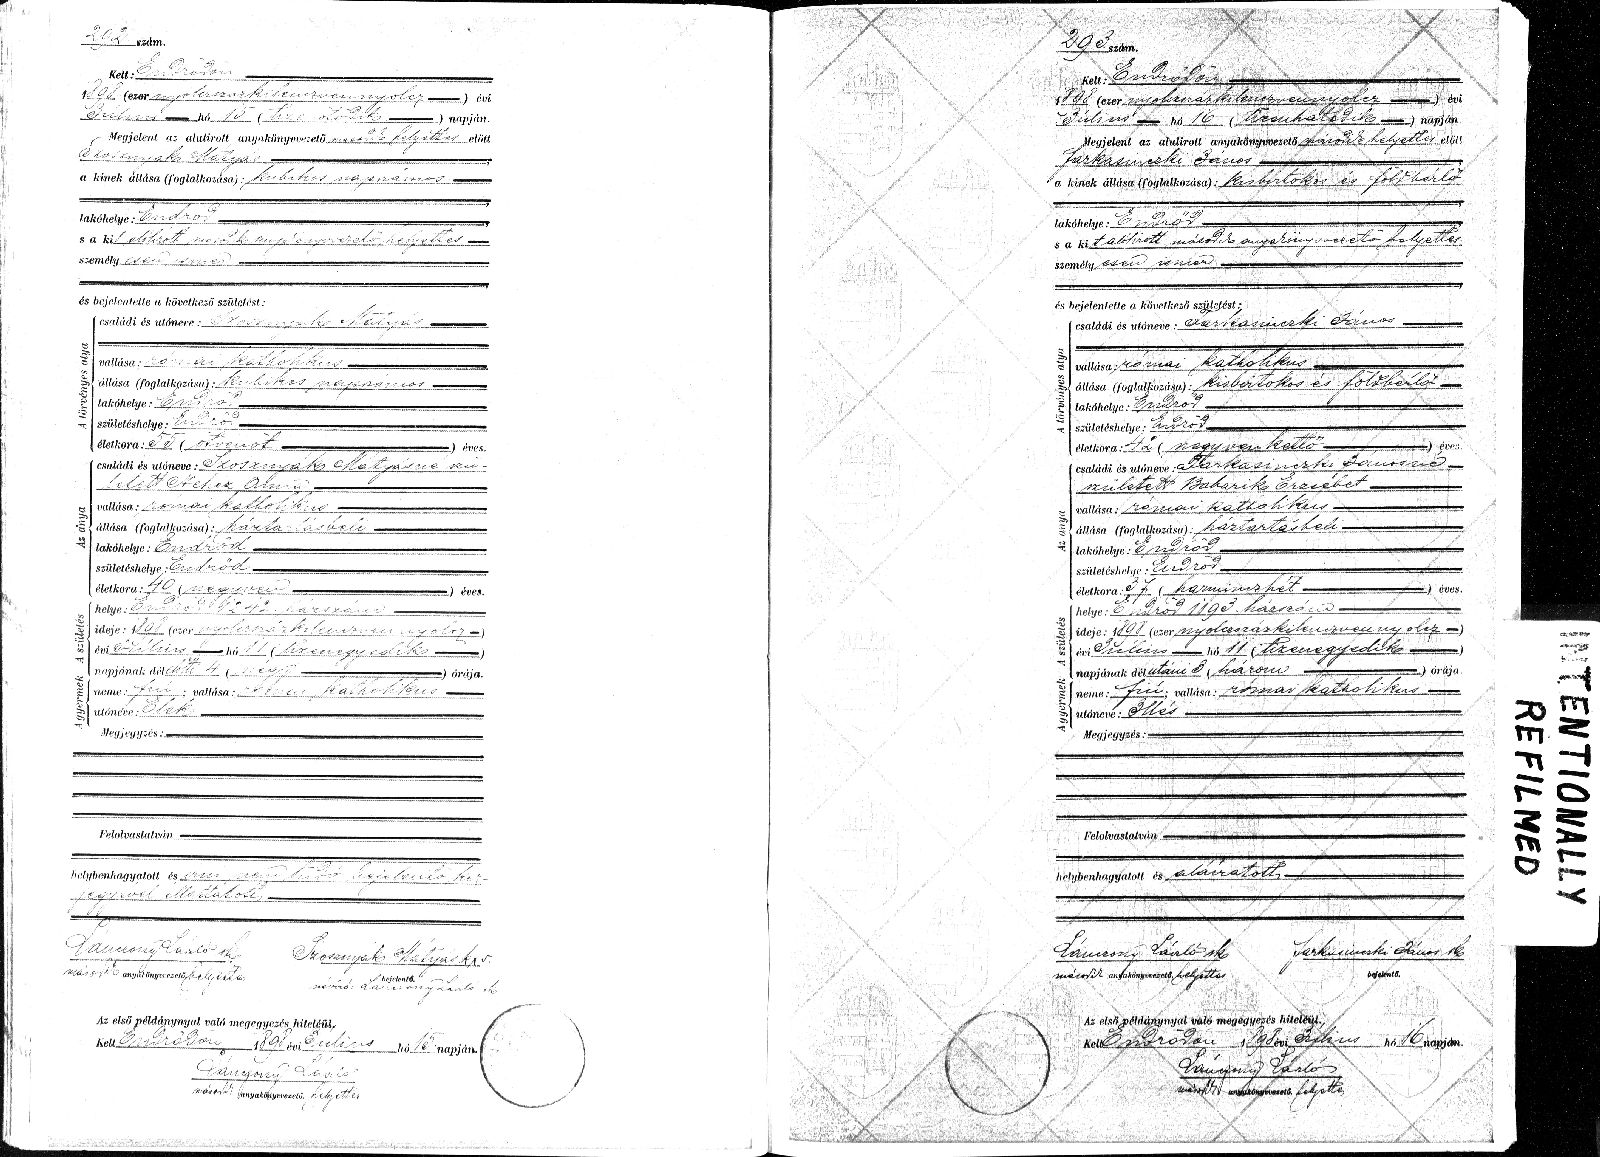 292 szám.
Kelt: Endrődön
1898 (ezer nyolczszázkilenczvennyolcz) évi
Július hó 15 (tizenötödik) napján.
Megjelent az alulirott anyakönyvezető második helyettes előtt
Mátyás
a kinek állása (foglalkozása): kubikus napszámos
lakóhelye: Endrőd
s a kit alulirott második anyakönyvvezető helyettes
személyesen ismer
és bejelentette a következő születést:
A törvényes atya
családi és utóneve: Mátyás
vallása: római katholikus
állása (foglalkozása): kubikus napszámos
lakóhelye: Endrőd
születéshelye: Endrőd
életkora: 55 (ötvenöt) éves.
Az anya
családi és utóneve: Mátyásné szü-
letett
vallása: római katholikus
állása (foglalkozása): háztartásbeli
lakóhelye: Endrőd
születéshelye: Endrőd
életkora: 40 (negyven) éves.
A születés
helye: Endrőd házszám
ideje: 1898 (ezer nyolczszázkilenczvennyolcz)
évi Július hó 11 (tizenegyedik)
napjának dél előtt 4 (négy) órája.
A gyermek
neme: fiú; vallása: római katholikus
utóneve: Elek
Megjegyzés:
Felolvastatván
helybenhagyatott és írni nem tudó bejelentő kéz-
jegyével elláttatott.
Lányony László sk
második anyakönyvezető, helyettes
Mátyás
bejelentő.
Az első példánynyal való megegyezés hiteléül,
Kelt Endrődön 1898 évi Július hó 15 napján.
Lányony László
második anyakönyvezető. helyettes
293 szám.
Kelt: Endrődön
1898 (ezer nyolczszázkilenczvennyolcz) évi
Július hó 16 (tizenhatodik) napján.
Megjelent az alulirott anyakönyvezető második helyettes előtt
Farkasinczki János
a kinek állása (foglalkozása): kisbirtokos és földbérlő
lakóhelye: Endrőd
s a kit alulirott második anyakönyvvezető helyettes
személyesen ismer
és bejelentette a következő születést:
A törvényes atya
családi és utóneve: Farkasinczki János
vallása: római katholikus
állása (foglalkozása): kisbirtokos és földbérlő
lakóhelye: Endrőd
születéshelye: Endrőd
életkora: 42 (negyvenkettő) éves.
Az anya
családi és utóneve: Farkasinczki Jánosné
született Babarik Erzsébet
vallása: római katholikus
állása (foglalkozása): háztartásbeli
lakóhelye: Endrőd
születéshelye: Endrőd
életkora: 37 (harminczhét) éves.
A születés
helye: Endrőd 1193 házszám
ideje: 1898 (ezer nyolczszázkilenczvennyolcz)
évi Július hó 11 (tizenegyedik)
napjának dél utáni 3 (három) órája.
A gyermek
neme: fiú; vallása: római katholikus
utóneve: Illés
Megjegyzés:
Felolvastatván
helybenhagyatott és aláiratott.
Lányony László sk
második anyakönyvezető, helyettes
Farkasinczki János sk
bejelentő.
Az első példánynyal való megegyezés hiteléül,
Kelt Endrődön 1898 évi Július hó 16 napján.
Lányony László
második anyakönyvezető. helyettes
INTENTIONALLY
REFILMED